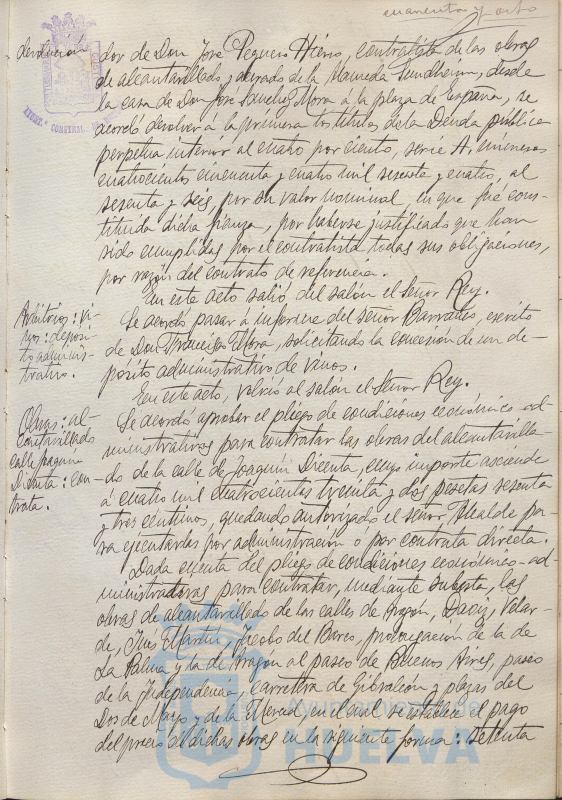 cuarenta y ocho
devolución
dor de Don José Peguero Hierro, contratista de las obras
de alcantarillado y adoquinado de la Alameda Sundheim, desde
la casa de Don José Sánchez Mora á la plaza de España, se
acordó devolver á la primera los títulos de la Deuda pública
perpetua interior al cuatro por ciento, serie A, números
cuatrocientos cincuenta y cuatro mil sesenta y cuatro, al
sesenta y seis, por su valor nominal, en que fué cons-
tituida dicha fianza, por haberse justificado que han
sido cumplidas por el contratista todas sus obligaciones,
por razón del contrato de referencia.
En este acto salió del salón el Señor Rey.
Arbitrios: vi-
nos: depósi-
to adminis-
trativo.
Se acordó pasar á informe del señor Barrades, escrito
de Don Francisco Mora, solicitando la concesión de un de-
pósito administrativo de vinos.
En este acto, volvió al salón el Señor Rey.
Obras: al-
cantarillado
calle Joaquín
Dicenta: con-
trata.
Se acordó aprobar el pliego de condiciones económico-ad-
ministrativas para contratar las obras del alcantarilla-
do de la calle de Joaquín Dicenta, cuyo importe asciende
á cuatro mil cuatrocientas treinta y dos pesetas sesenta
y tres céntimos, quedando autorizado el señor Alcalde pa-
ra ejecutarlas por administración o por contrata directa.
Dada cuenta del pliego de condiciones económico-ad-
ministrativas para contratar, mediante subasta, las
obras de alcantarillado de las calles de Aragón, Daoiz, Velar-
de, Inés Martín, Jacobo del Barco, prolongación de la de
La Palma y la de Aragón al paseo de Buenos Aires, paseo
de la Independencia, carretera de Gibraleón y plazas del
Dos de Mayo y de la Merced, en el cual se establece el pago
del precio de dichas obras en la siguiente forma: setenta
HUELVA